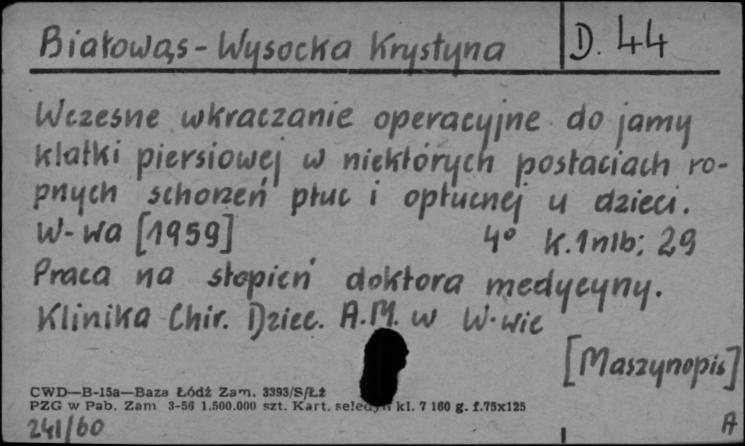 Białowąs-Wysocka Krystyna D. 44
Wczesne wkraczanie operacyjne do jamy
klatki piersiowej w niektórych postaciach ro-
pnych schorzeń płuc i opłucnej u dzieci.
W-wa [1959] 4° k.1nlb; 29
Praca na stopień doktora medycyny.
Klinika Chir. Dziec. A.M. w W-wie
[Maszynopis]
CWD—B-15a—Baza Łódź Zam. 3393/S/Łż
PZG w Pab. Zam 3-56 1.500.000 szt. Kart. kl. 7 160 g. f.75x125
241/60 A